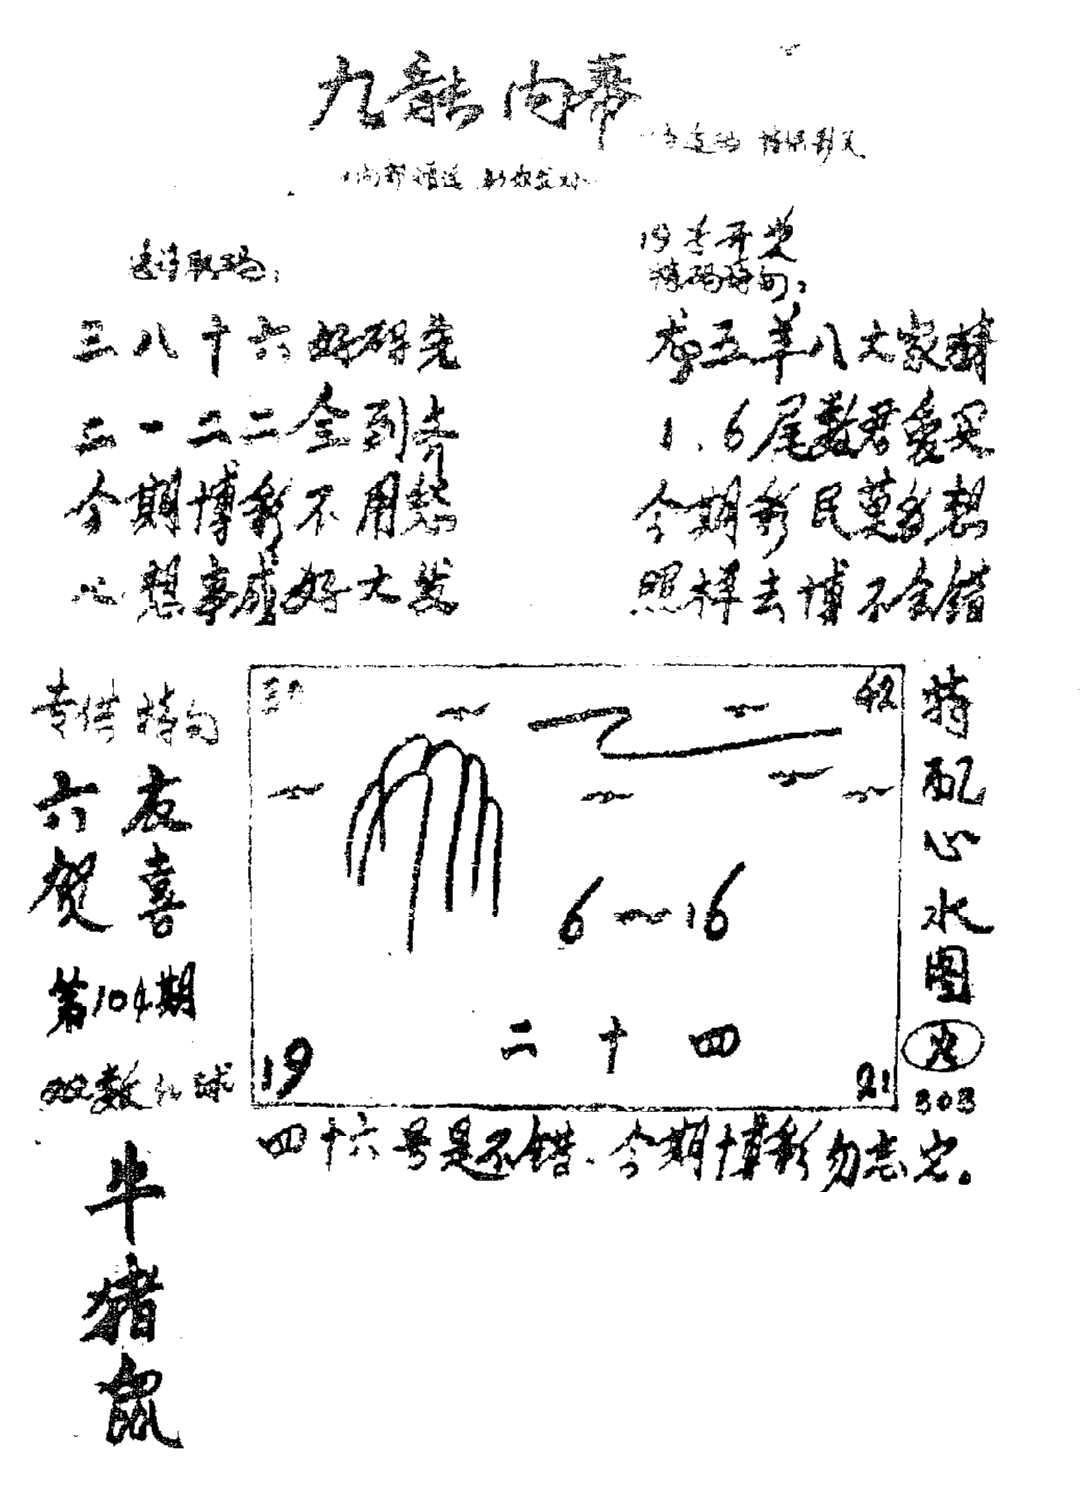 九龙内幕
19
三八十六好研究
三一二二全到齐
今期博彩不用愁
心想事成好大发
五羊八大家精
1.6尾数君爱买
今期彩民莫多想
照样去博不会错
专供特句
六友
贺喜
第104期
双数红球
牛
猪
鼠
42
6~16
二十四
19
21
特配心水图
303
四十六号是不错.今期博彩勿忘它。